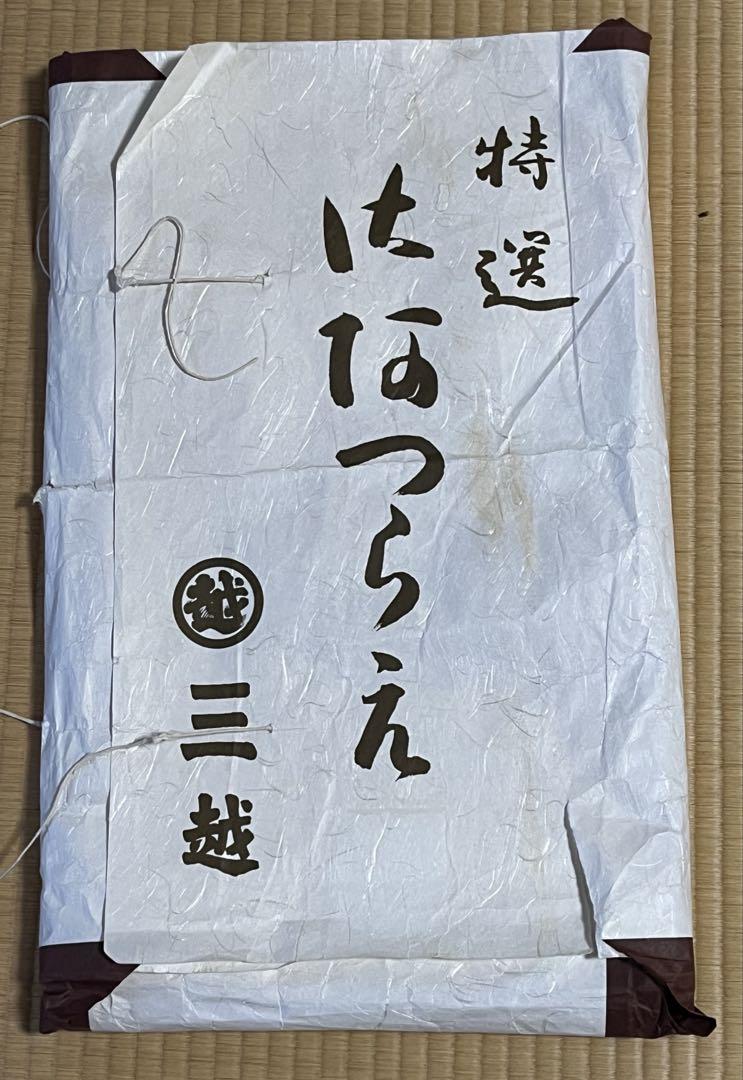 特選
御阿つらえ
越
三越